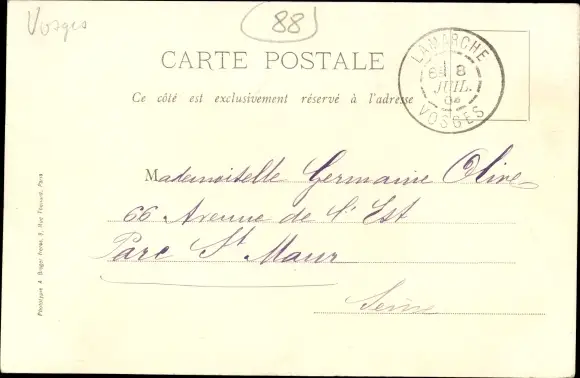 Vosges
88
CARTE POSTALE
Ce côté est exclusivement réservé à l'adresse
LAMARCHE
6E 8
JUIL.
04
VOSGES
Mademoiselle Germaine Olive
66 Avenue de l'Est
Parc St Maur
Seine
Phototypie A. Breger Frères, 9, Rue Thénard, Paris